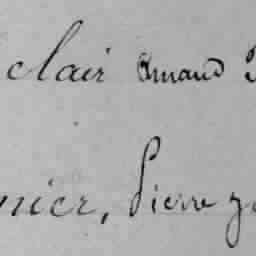 clair Amand
nier, Pierre